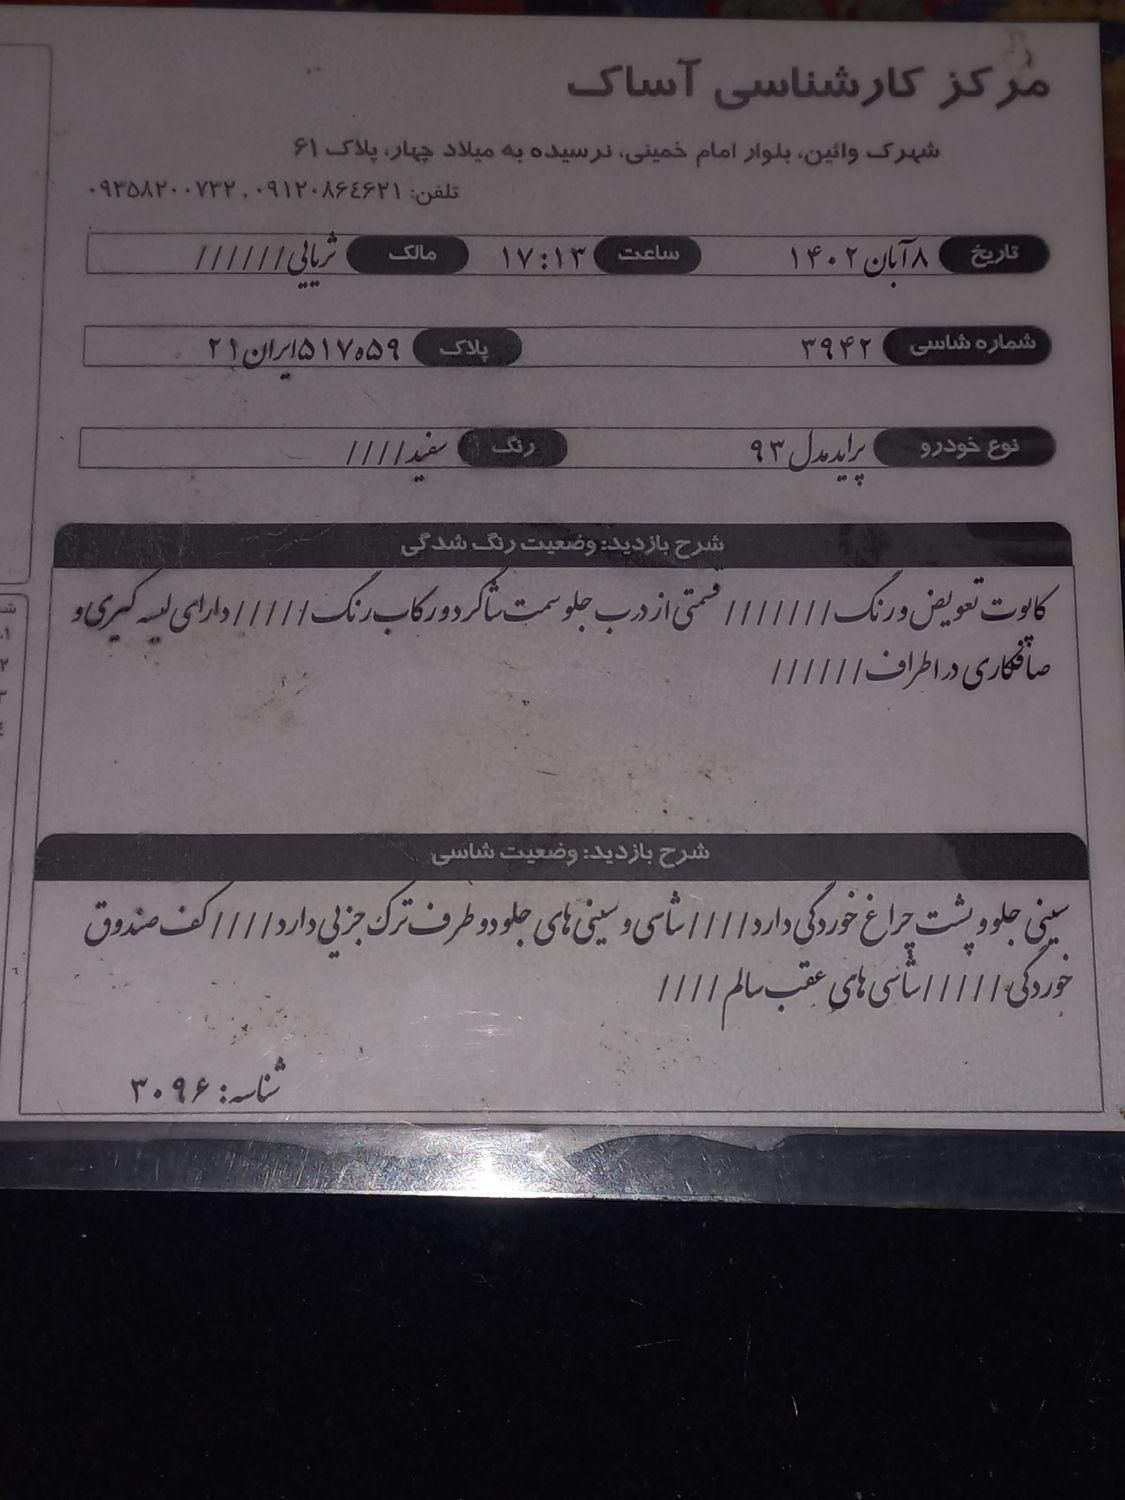 مرکز کارشناسی آساک
شهرک وائین، بلوار امام خمینی، نرسیده به میلاد چهار، پلاک ۶۱
تلفن: ۰۹۱۲۰۸۶٤۶۲۱ ، ۰۹۳۵۸۲۰۰۷۳۲
تاریخ ۸ آبان ۱۴۰۲ ساعت ۱۷:۱۳ مالک ثریایی//////
شماره شاسی ۳۹۴۲ پلاک ۵۱۷ه۵۹ ایران ۲۱
نوع خودرو پراید مدل ۹۳ رنگ سفید////
شرح بازدید: وضعیت رنگ شدگی
کاپوت تعویض و رنگ/////// قسمتی از درب جلو سمت شاگرد و رکاب رنگ///// دارای لیسه گیری و
صافکاری در اطراف//////
شرح بازدید: وضعیت شاسی
سینی جلو و پشت چراغ خوردگی دارد//// شاسی و سینی های جلو دو طرف ترک جزیی دارد//// کف صندوق
خوردگی///// شاسی های عقب سالم ////
شناسه: ۳۰۹۶